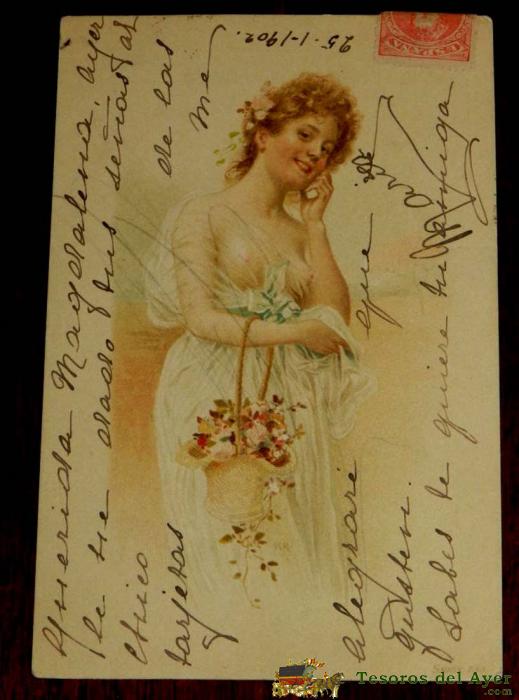 25-1-1902.
Querida Magdalena, ayer
le he dado tus señas al
chico de las
tarjetas me
alegraré que
gusten.
Sabes te quiere tu amiga
Tesoros del Ayer
.com